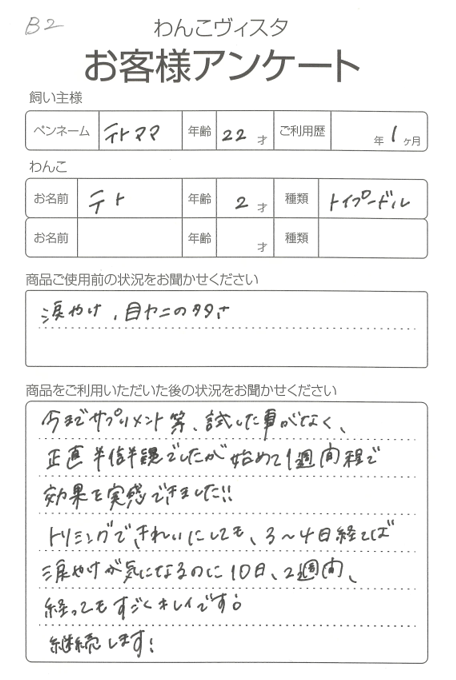 B2
わんこヴィスタ
お客様アンケート
飼い主様
ペンネーム テトママ 年齢 22才 ご利用歴 年1ヶ月
わんこ
お名前 テト 年齢 2才 種類 トイプードル
お名前 年齢 才 種類
商品ご使用前の状況をお聞かせください
涙やけ、目ヤニの多さ
商品をご利用いただいた後の状況をお聞かせください
今までサプリメント等、試した事がなく、
正直半信半疑でしたが始めて1週間程で
効果を実感できました!!
トリミングできれいにしても、3〜4日経てば
涙やけが気になるのに10日、2週間、
経ってもすごくキレイです。
継続します!